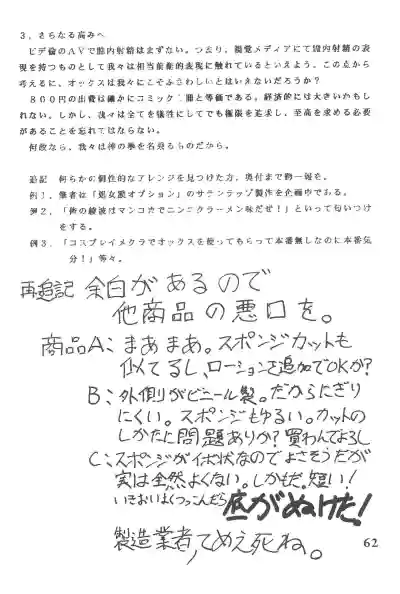 3．さらなる高みへ
ビデ倫のAVで膣内射精はまずない。つまり、視覚メディアにて膣内射精の表
現を持つものとして我々は相当前衛的表現に触れているといえよう。この点から
考えるに、オックスは我々にこそふさわしいとはいえないだろうか？
８００円の出費は確かにコミック一冊と等価である。経済的には大きいかもし
れない。しかし、我々は全てを犠牲にしてでも極限を追求し、至高を求める必要
があることを忘れてはならない。
何故なら、我々は神の拳を名乗るものだから。
追記　何らかの個性的なアレンジを見つけた方、奥付まで御一報を。
例１．筆者は「処女膜オプション」のサランラップ製作を企画中である。
例２．「俺の綾波はマンコカでニンニクラーメン味だぜ！」といって匂いつけ
をする。
例３．「コスプレイメクラでオックスを使ってもらって本番無しなのに本番気
分！」等々。
再追記　余白があるので
他商品の悪口を。
商品A：まあまあ。スポンジカットも
似てるし、ローションを追加でOKか？
B：外側がビニール製。だからにぎり
にくい。スポンジもゆるい。カットの
しかたに問題ありか？買わんでよろし
C：スポンジがイボ状なのでよさそうだが
実は全然よくない。しかもだ、短い！
いきおいよくつっこんだら底がぬけた！
製造業者，てめえ死ね。
62